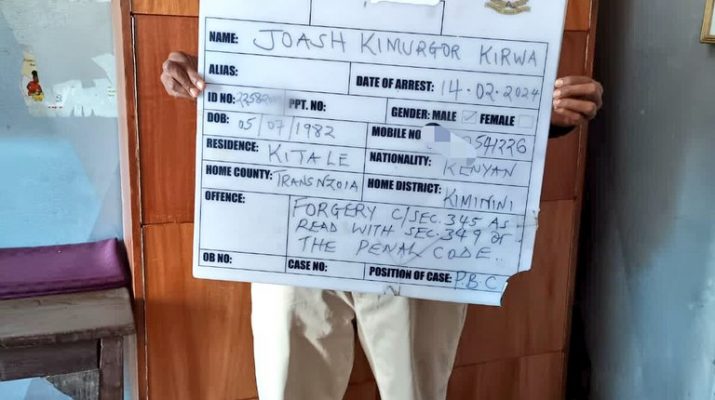 NAME: JOASH KIMURGOR KIRWA
ALIAS: DATE OF ARREST: 14-02-2024
ID NO: PPT. NO: GENDER: MALE ✓ FEMALE
DOB: 05/07/1982 MOBILE NO 541226
RESIDENCE: KITALE NATIONALITY: KENYAN
HOME COUNTY: TRANSNZOIA HOME DISTRICT: KIMININI
OFFENCE: FORGERY C/SEC.345 AS
READ WITH SEC.349 OF
THE PENAL CODE..
OB NO: CASE NO: POSITION OF CASE: P.B.C